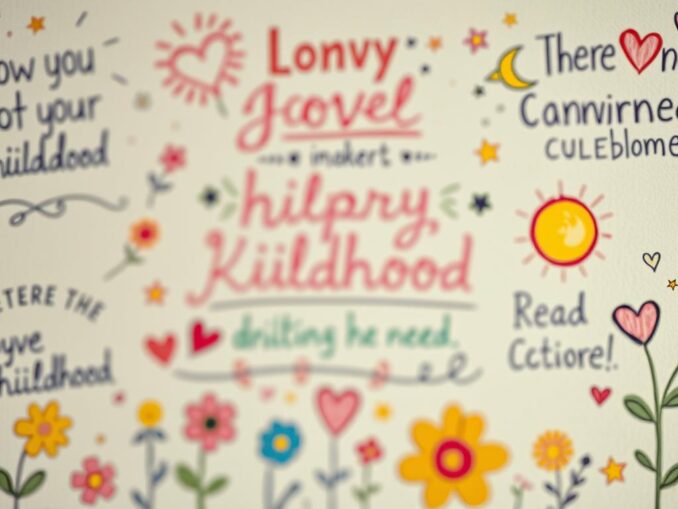 ow you
ot your
hiilddood
ETERE THE
yve
hiildhood
Lonvy
Jcovel
inokert
hilpry,
Kiildhood
drilting he need.
There
Canrvirned
CULEblome
Read
Cctiore!.